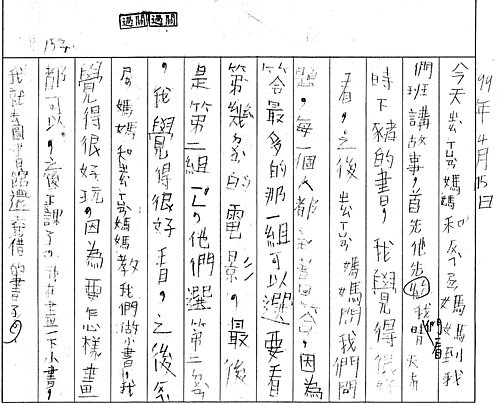 99年4月15日
今天 媽媽和 媽媽到我
們班講故事,首先他先 我們看
時下豬的書,我覺得很好
看,之後 媽媽問我們問
題,每一個人都 答,因為
答最多的那一組可以選要看
第幾部的電影,最後
是第二組,他們選第二部
,我覺得很好看,之後
媽媽和 媽媽教我們做小書,我
覺得很好玩,因為要怎樣畫
都可以,之後下課了,我在畫一下小書,
我就去圖書館還 借的書了。
過關 過關